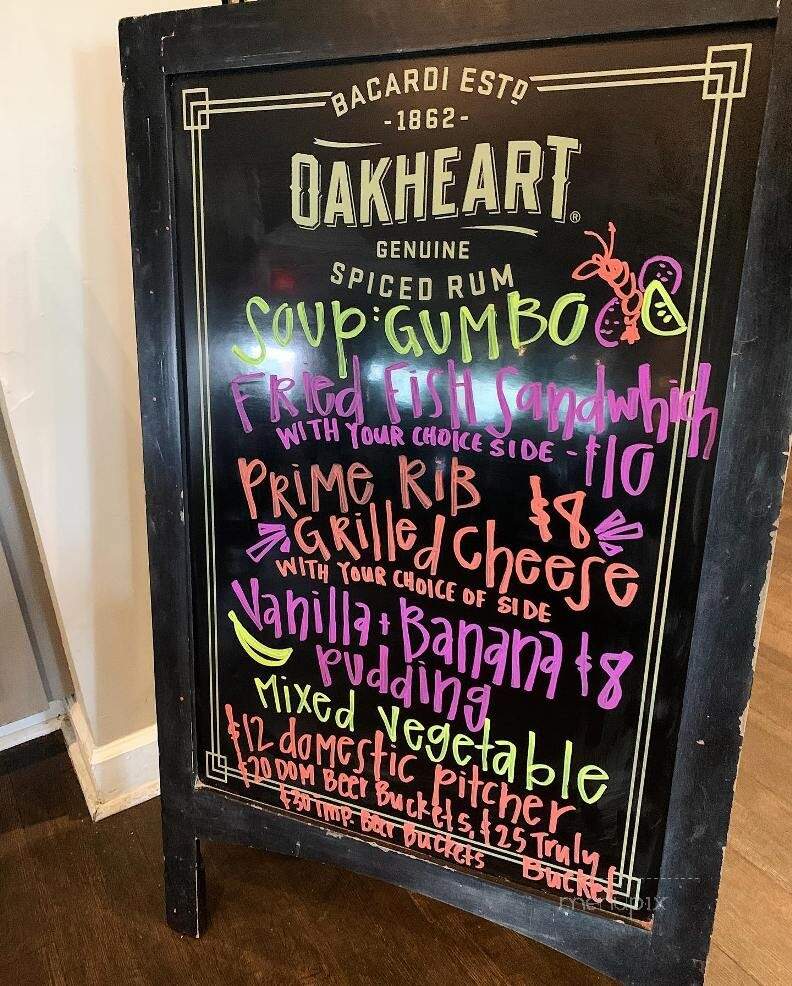 BACARDI ESTD
-1862-
OAKHEART®
GENUINE
SPICED RUM
Soup: GUMBO
Fried Fish Sandwhich
WITH YOUR CHOICE SIDE - $10
PRIME RIB $8
GRilled Cheese
WITH YOUR CHOICE OF SIDE
Vanilla + Banana $8
Pudding
Mixed Vegetable
$12 domestic pitcher
$20 DOM Beer Buckets, $25 Truly
$30 Imp. Beer Buckets Bucket
menupix